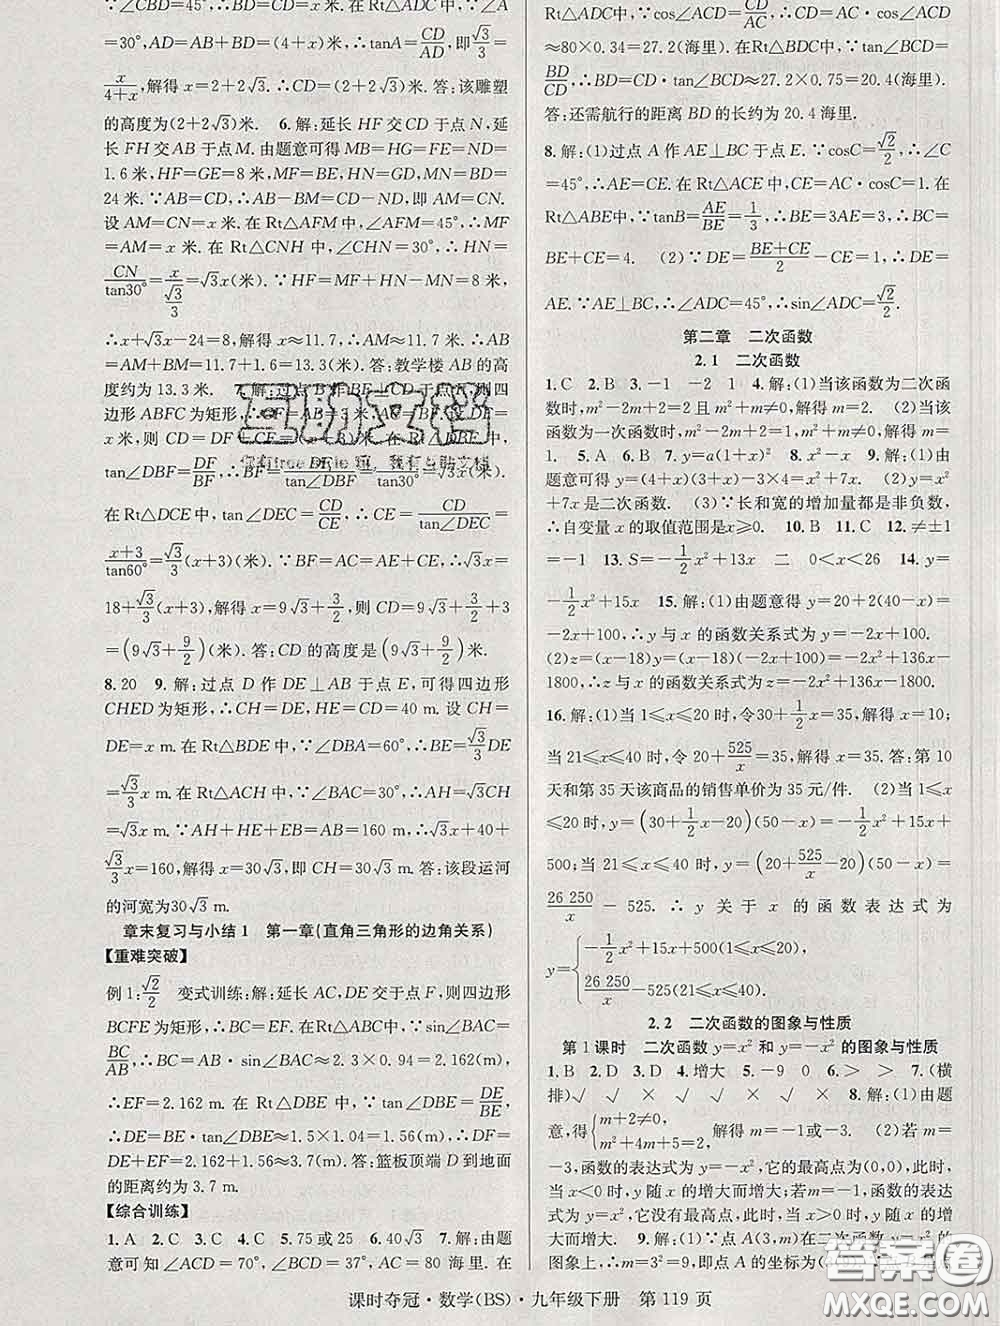 ∵∠CBD=45°,∴DB=CD=x米.∵∠A
=30°,AD=AB+BD=(4+x)米,∴tanA=CD/AD,即√3/3=
x/(4+x),解得x=2+2√3.∴CD=(2+2√3)米.答:该雕塑
的高度为(2+2√3)米. 6.解:延长HF交CD于点N,
延长FH交AB于点M.由题意可得MB=HG=FE=ND=
1.6米,HF=GE=8米,MF=BE,HN=GD,MN=BD=
24米,∵AB=CD,∴AB-MB=CD-ND,即AM=CN.
设AM=CN=x米.在Rt△AFM中,∠AFM=45°,∴MF
=AM=x米.在Rt△CNH中,∠CHN=30°,∴HN=
CN/tan30°=x/(√3/3)=√3x(米).∵HF=MF+HN-MN=8米,
∴x+√3x-24=8,解得x≈11.7,∴AM≈11.7米.∴AB
=AM+BM=11.7+1.6=13.3(米).答:教学楼AB的高
度约为13.3米. 7.解:过点B作BF⊥CD于点F,则四
边形ABFC为矩形,∴CF=AB=3米.设DF=
x米,则CD=DF+CF=(x+3)米.在Rt△DBF中,
tan∠DBF=DF/BF,∴BF=DF/tan∠DBF=√3x(米).
在Rt△DCE中,tan∠DEC=CD/CE,∴CE=CD/tan∠DEC=
(x+3)/tan60°=√3/3(x+3)(米).∵BF=AC=AE+CE,∴√3x=
18+√3/3(x+3),解得x=9√3+3/2,∴CD=9√3+3/2+3
=(9√3+9/2)(米).答:CD的高度是(9√3+9/2)米.
8.20 9.解:过点D作DE⊥AB于点E,可得四边形
CHED为矩形,∴CH=DE,HE=CD=40 m.设CH=
DE=x m.在Rt△BDE中,∵∠DBA=60°,∴BE=√3/3DE
=√3/3x m.在Rt△ACH中,∵∠BAC=30°,∴AH=√3CH
=√3x m.∵AH+HE+EB=AB=160 m,∴√3x+40+
√3/3x=160,解得x=30√3,即CH=30√3 m.答:该段运河
的河宽为30√3 m.
章末复习与小结1 第一章(直角三角形的边角关系)
【重难突破】
例1:√2/2 变式训练:解:延长AC,DE交于点F,则四边形
BCFE为矩形,∴BC=EF.在Rt△ABC中,∵sin∠BAC=
BC/AB,∴BC=AB·sin∠BAC≈2.3×0.94=2.162(m),
∴EF=2.162 m.在Rt△DBE中,∵tan∠DBE=DE/BE,
∴DE=BE·tan∠DBE≈1.5×1.04=1.56(m),∴DF=
DE+EF=2.162+1.56≈3.7(m).答:篮板顶端D到地面
的距离约为3.7 m.
【综合训练】
1.A 2.C 3.C 4.C 5.75或25 6.40√3 7.解:由题
意可知∠ACD=70°,∠BCD=37°,AC=80海里.在
Rt△ADC中,∵cos∠ACD=CD/AC,∴CD=AC·cos∠ACD
≈80×0.34=27.2(海里).在Rt△BDC中,∵tan∠BCD=
BD/CD,∴BD=CD·tan∠BCD≈27.2×0.75=20.4(海里).
答:还需航行的距离BD的长约为20.4海里.
8.解:(1)过点A作AE⊥BC于点E.∵cosC=√2/2,∴∠C
=45°,∴AE=CE.在Rt△ACE中,CE=AC·cosC=1.在
Rt△ABE中,∵tanB=AE/BE=1/3,∴BE=3AE=3,∴BC=
BE+CE=4. (2)∵DE=(BE+CE)/2-CE=1,∴DE=
AE.∵AE⊥BC,∴∠ADC=45°,∴sin∠ADC=√2/2.
第二章 二次函数
2.1 二次函数
1.C 2.B 3.-1 -2 1 4.解:(1)当该函数为二次函
数时,m²-2m+2=2且m²+m≠0,解得m=2. (2)当该
函数为一次函数时,m²-2m+2=1,m²+m≠0,解得m=
1. 5.A 6.B 7.y=a(1+x)² 8.x²-x 9.解:(1)由
题意可得y=(4+x)(3+x)-3×4=x²+7x. (2)y=x²
+7x是二次函数. (3)∵长和宽的增加量都是非负数,
∴自变量x的取值范围是x≥0. 10.B 11.C 12.≠±1
=-1 13.S=-1/2x²+13x 二 0<x<26 14.y=
-1/2x²+15x 15.解:(1)由题意得y=20+2(40-x)=
-2x+100,∴y与x的函数关系式为y=-2x+100.
(2)z=(x-18)y=(x-18)(-2x+100)=-2x²+136x-
1800,∴z与x的函数关系式为z=-2x²+136x-1800.
16.解:(1)当1≤x≤20时,令30+1/2x=35,解得x=10;
当21≤x≤40时,令20+525/x=35,解得x=35.答:第10
天和第35天该商品的销售单价为35元/件. (2)当1≤
x≤20时,y=(30+1/2x-20)(50-x)=-1/2x²+15x+
500;当21≤x≤40时,y=(20+525/x-20)(50-x)=
26 250/x-525.综上所述,y关于x的函数表达式为
y={-1/2x²+15x+500(1≤x≤20),
26 250/x-525(21≤x≤40).
2.2 二次函数的图象与性质
第1课时 二次函数y=x²和y=-x²的图象与性质
1.B 2.D 3.D 4.增大 5.-9 0 6.> > 7.(横
排)√ √ × √ × √ × 8.解:(1)由题
意,得{m+2≠0, m²+4m+5=2, 解得m=-1或-3. (2)若m=
-3,函数的表达式为y=-x²,它的最高点为(0,0),此时,
当x<0时,y随x的增大而增大;若m=-1,函数的表达
式为y=x²,它没有最高点.此时,当x>0时,y随x的
增大而增大. 9.解:(1)∵点A(3,m)在二次函数y=x²的
图象上,∴m=3²=9,∴点A的坐标为
课时夺冠·数学(BS)·九年级下册 第119页
互助文档
答案圈